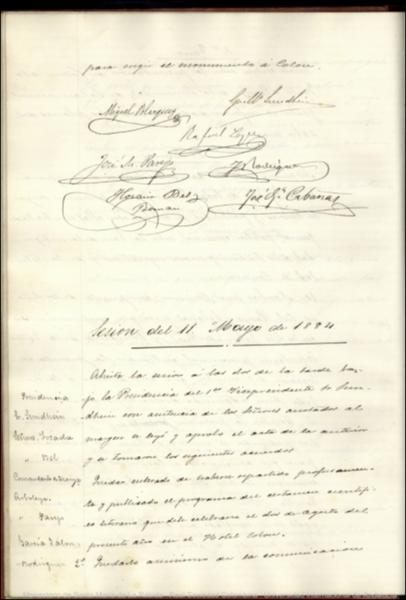 para erigir el monumento á Colon.
Miguel Marquez
Guillº Sundheim
Rafael Lopez
José M. Parejo
J. Rodriguez
Horacio Bel y
Roman
José Gª Cabañas
Sesion del 11 Mayo de 1884
Abierta la sesion á las dos de la tarde ba-
jo la Presidencia del 1er Vicepresidente Sr Sun-
dheim con asistencia de los Señores anotados al
margen se leyó y aprobó el acta de la anterior
y se tomaron los siguientes acuerdos
Quedar enterado de haberse repartido profusamen-
te y publicado el programa del certamen cientifi-
co literario que debe celebrarse el dos de agosto del
presente año en el Hotel Colon.
2º Quedado asimismo de la comunicacion
Presidencia
Sr. Sundheim
Señores
" Bel
" Parejo
Garcia
Rodriguez